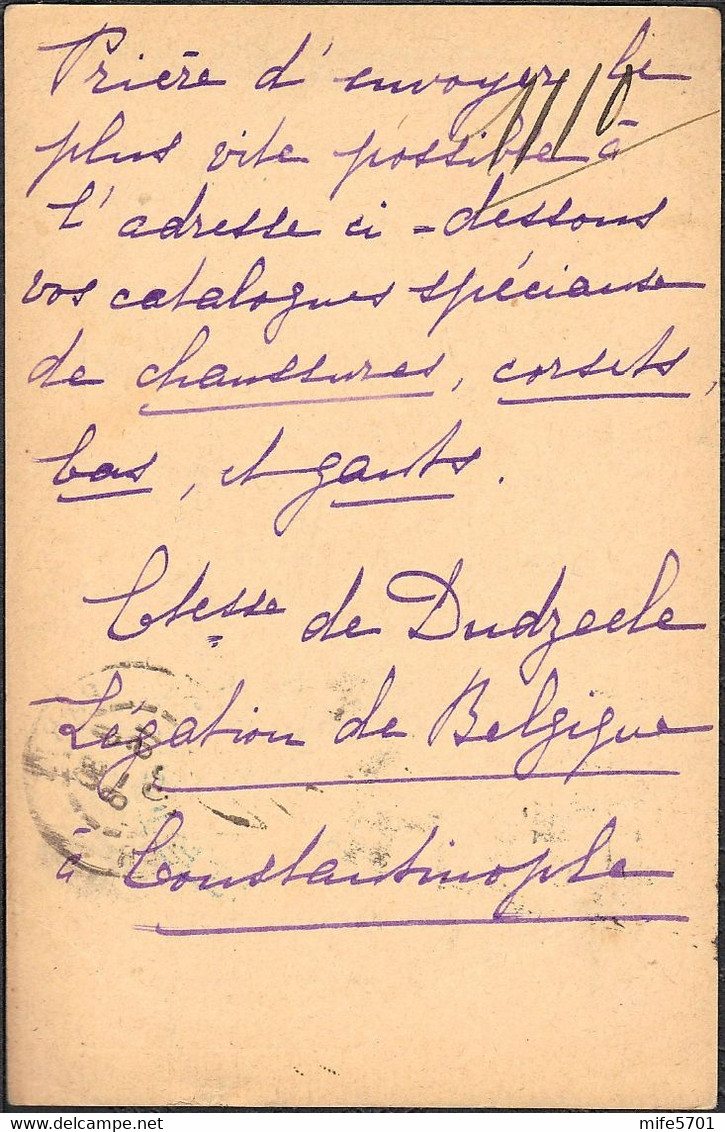 Prière d'envoyer le
1110
plus vite possible à
l'adresse ci-dessous
vos catalogues spéciaux
de chaussures, corsets,
bas, et gants.
Ctesse de Dudzeele
Légation de Belgique
à Constantinople
www.delcampe.net
mife5701